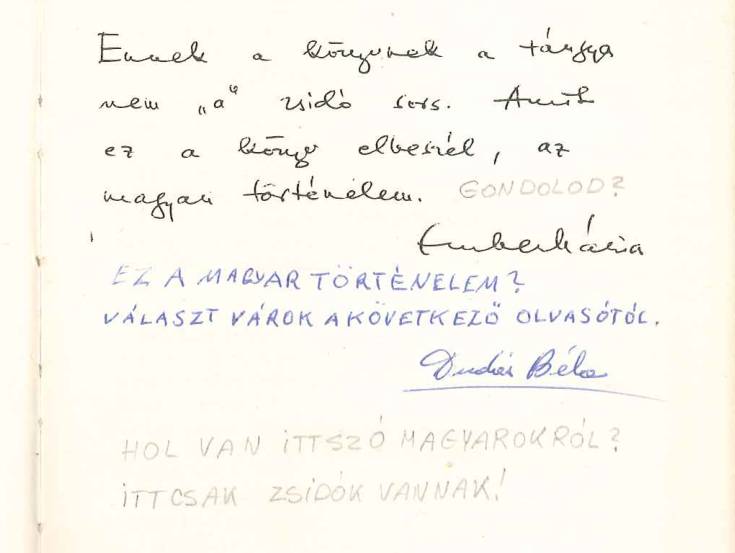 Ennek a könyvnek a tárgya
nem „a" zsidó sors. Amit
ez a könyv elbeszél, az
magyar történelem. GONDOLOD?
Ember Mária
EZ A MAGYAR TÖRTÉNELEM?
VÁLASZT VÁROK A KÖVETKEZŐ OLVASÓTÓL.
Dudás Béla
HOL VAN ITT SZÓ MAGYAROKRÓL?
ITT CSAK ZSIDÓK VANNAK!